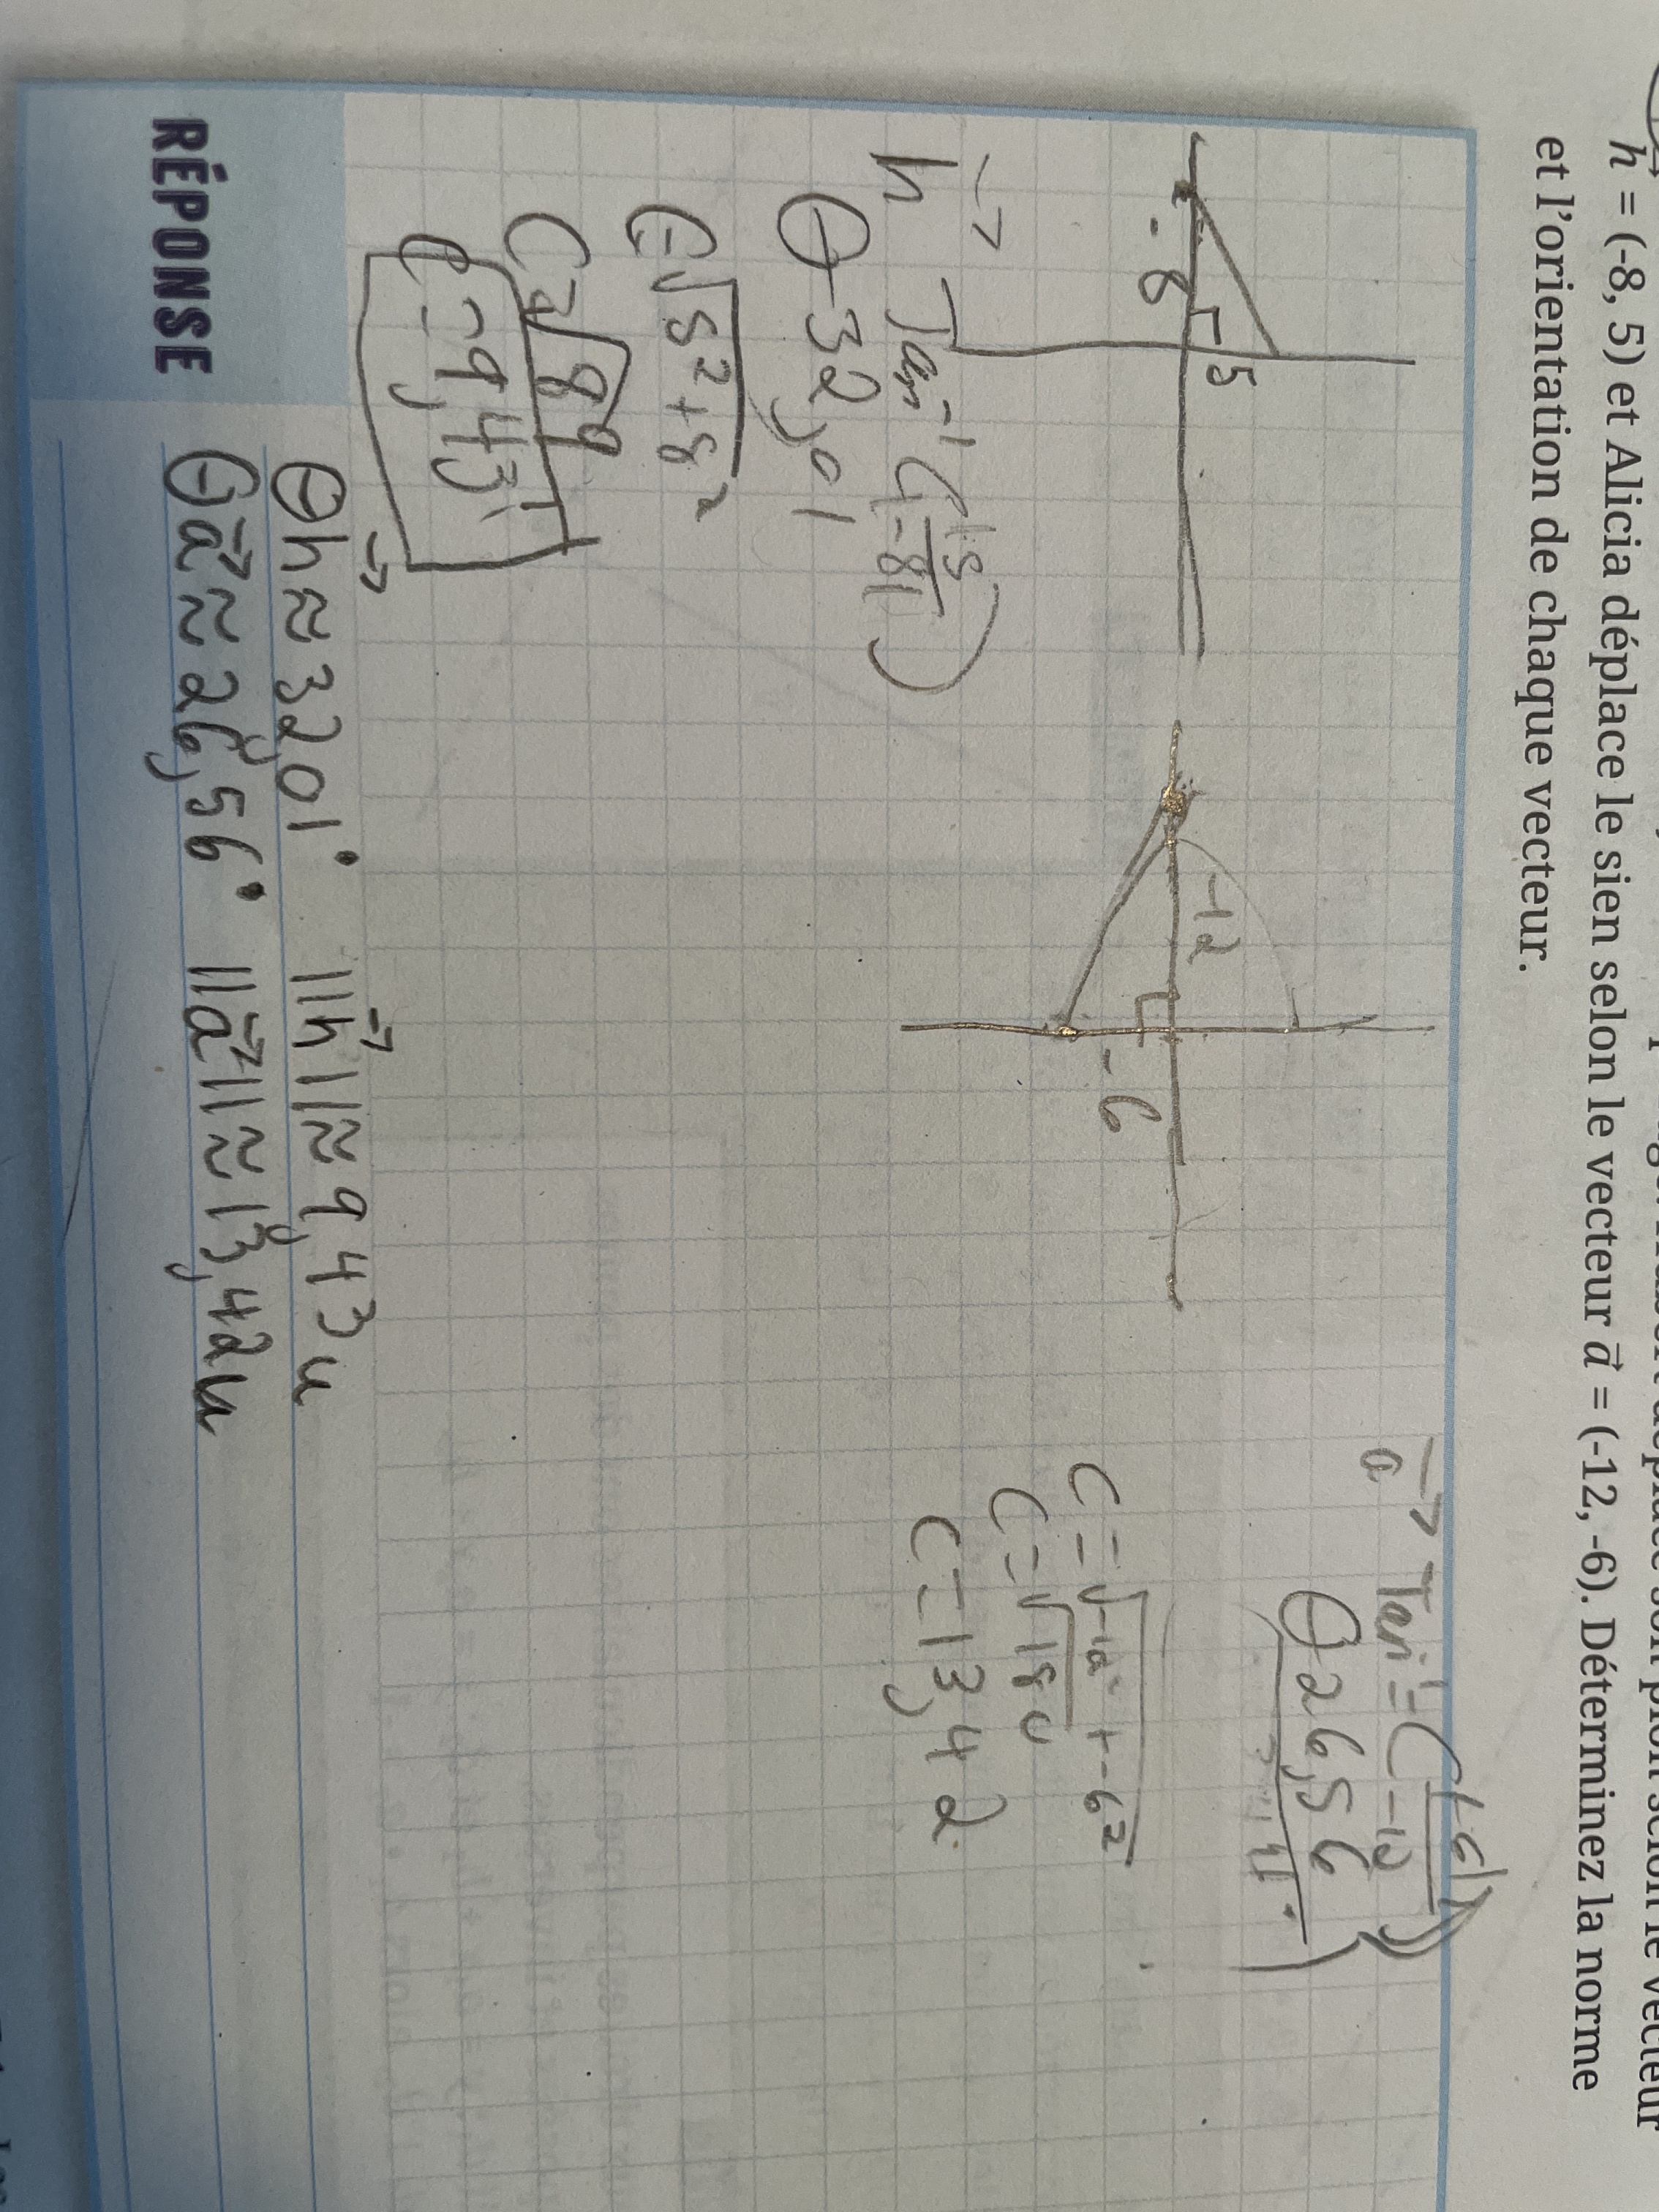 h⃗ = (-8, 5) et Alicia déplace le sien selon le vecteur a⃗ = (-12, -6). Déterminez la norme
et l'orientation de chaque vecteur.
-8
5
h⃗ Tan⁻¹(|5|/|-8|)
θ 32,01
C=√5²+8²
C=√89
C=9,43
-12
-6
a⃗ Tan⁻¹=(|-6|/-12)
θ 26,56
C=√-12²+-6²
C=√180
C=13,42
RÉPONSE
θh⃗ ≈ 32,01° ||h⃗|| ≈ 9,43u
θa⃗ ≈ 26,56° ||a⃗|| ≈ 13,42u